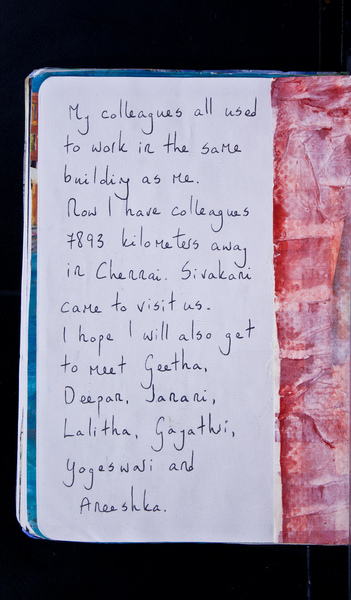 My colleagues all used
to work in the same
building as me.
Now I have colleagues
7893 kilometers away
in Chennai. Sivakani
came to visit us.
I hope I will also get
to meet Geetha,
Deepan, Janani,
Lalitha, Gayathri,
Yogeswari and
Aneeshka.